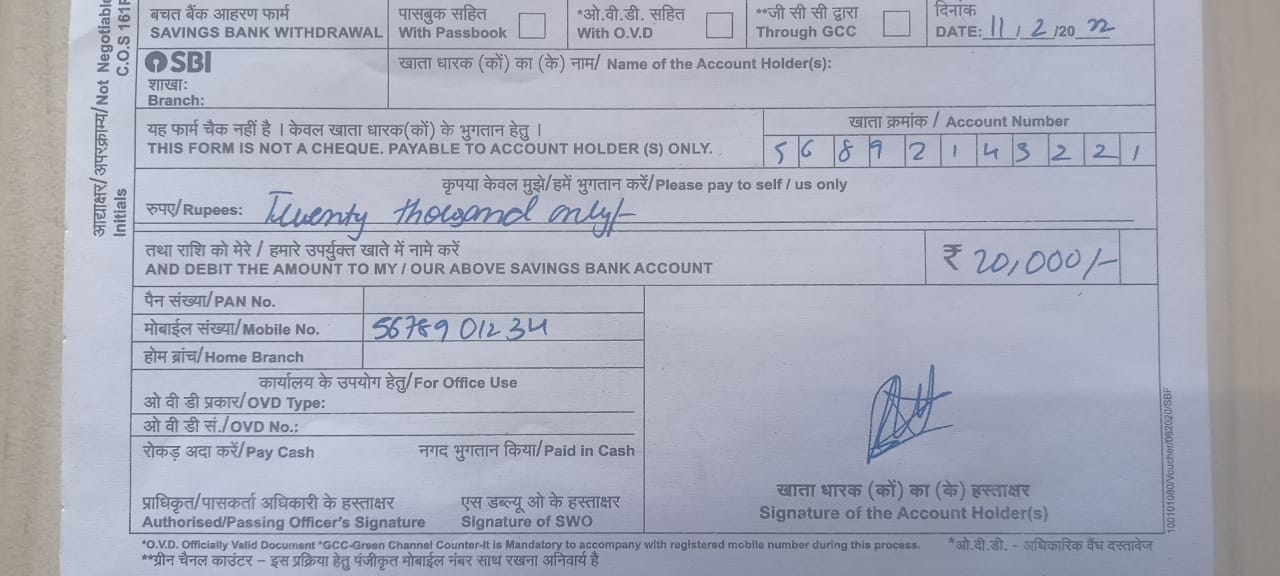 बचत बैंक आहरण फार्म
SAVINGS BANK WITHDRAWAL
पासबुक सहित
With Passbook
*ओ.वी.डी. सहित
With O.V.D
**जी सी सी द्वारा
Through GCC
दिनांक
DATE: 11 / 2 /20 22
SBI
शाखा:
Branch:
खाता धारक (कों) का (के) नाम/ Name of the Account Holder(s):
यह फार्म चैक नहीं है । केवल खाता धारक(कों) के भुगतान हेतु ।
THIS FORM IS NOT A CHEQUE. PAYABLE TO ACCOUNT HOLDER (S) ONLY.
खाता क्रमांक / Account Number
5 6 8 9 2 1 4 3 2 2 1
कृपया केवल मुझे/हमें भुगतान करें/Please pay to self / us only
रुपए/Rupees: Twenty thousand only/-
तथा राशि को मेरे / हमारे उपर्युक्त खाते में नामे करें
AND DEBIT THE AMOUNT TO MY / OUR ABOVE SAVINGS BANK ACCOUNT
₹ 20,000/-
पैन संख्या/PAN No.
मोबाईल संख्या/Mobile No. 5678901234
होम ब्रांच/Home Branch
कार्यालय के उपयोग हेतु/For Office Use
ओ वी डी प्रकार/OVD Type:
ओ वी डी सं./OVD No.:
रोकड़ अदा करें/Pay Cash
नगद भुगतान किया/Paid in Cash
प्राधिकृत/पासकर्ता अधिकारी के हस्ताक्षर
Authorised/Passing Officer's Signature
एस डब्ल्यू ओ के हस्ताक्षर
Signature of SWO
खाता धारक (कों) का (के) हस्ताक्षर
Signature of the Account Holder(s)
*O.V.D. Officially Valid Document *GCC-Green Channel Counter-It is Mandatory to accompany with registered mobile number during this process.
*ओ.वी.डी. - अधिकारिक वैध दस्तावेज
**ग्रीन चैनल काउंटर – इस प्रक्रिया हेतु पंजीकृत मोबाईल नंबर साथ रखना अनिवार्य है
आद्याक्षर/अपरक्राम्य/Not Negotiable
Initials
C.O.S 161
100101080/Voucher/062020/SBF